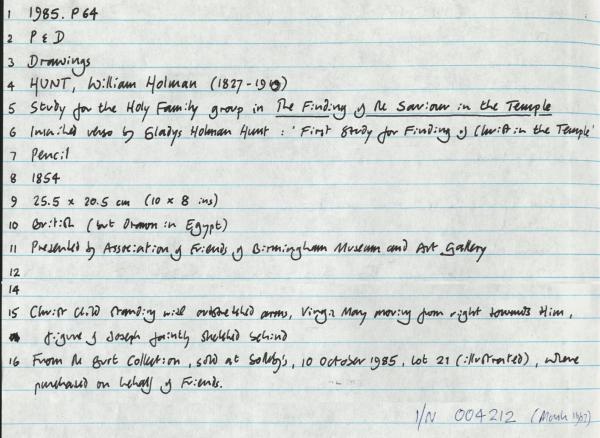 1 1985.P64
2 P & D
3 Drawings
4 HUNT, William Holman (1827-1910)
5 Study for the Holy Family group in The Finding of the Saviour in the Temple
6 Inscribed verso by Gladys Holman Hunt : 'First Study for Finding of Christ in the Temple'
7 Pencil
8 1854
9 25.5 x 20.5 cm (10 x 8 ins)
10 British (but Drawn in Egypt)
11 Presented by Association of Friends of Birmingham Museum and Art Gallery
12
14
15 Christ Child standing with outstretched arms, Virgin Mary moving from right towards Him,
figure of Joseph faintly sketched behind
16 From the Burt Collection, sold at Sotheby's, 10 October 1985, lot 21 (illustrated), where
purchased on behalf of Friends.
I/N 004212